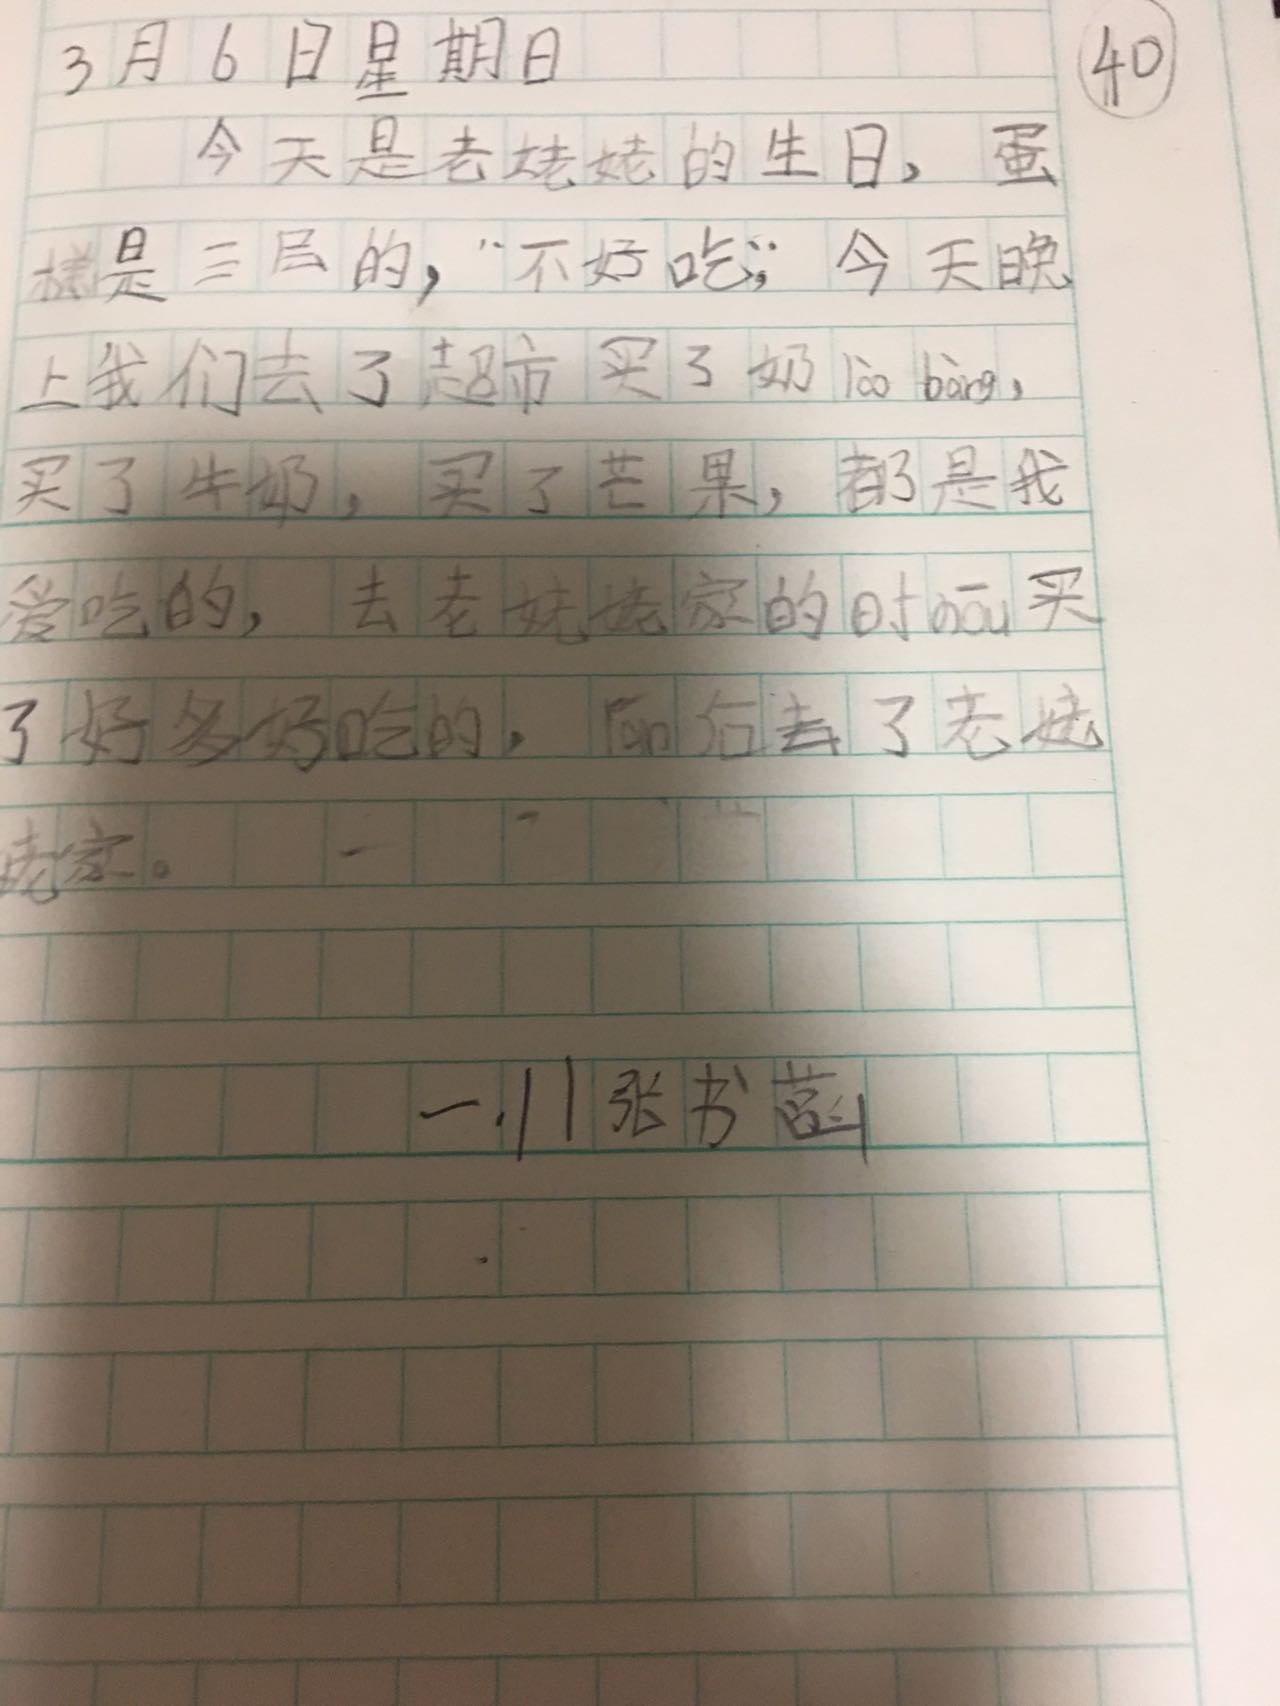 3月6日星期日
40
今天是老姥姥的生日，蛋
糕是三层的，“不好吃”；今天晚
上我们去了超市买了奶lào bàng，
买了牛奶，买了芒果，都是我
爱吃的，去老姥姥家的时hòu买
了好多好吃的，ran后去了老姥
姥家。
一.11张书菡